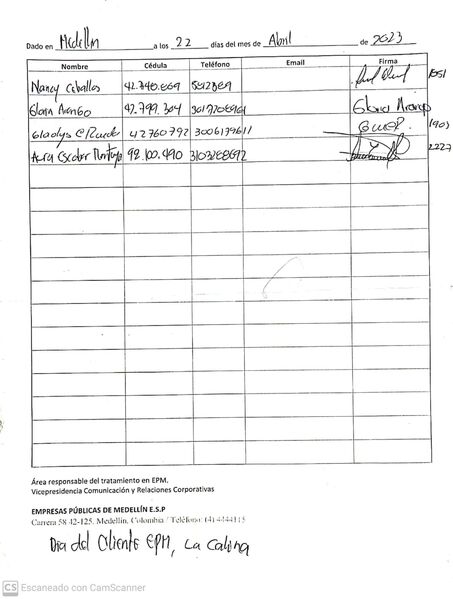 Dado en Medellín a los 22 días del mes de Abril de 2023
Nombre Cédula Teléfono Email Firma
Nancy Ceballos 42.740.669 5812869 1051
Gloria Arango 42.799.304 3017208961 Gloria Arango
Gladys E Rueda 42760792 3006139611 GLUER 1903
Aura Escobar Montoya 92.100.490 3103268692 2227
Área responsable del tratamiento en EPM.
Vicepresidencia Comunicación y Relaciones Corporativas
EMPRESAS PÚBLICAS DE MEDELLÍN E.S.P
Carrera 58 42-125, Medellín, Colombia / Teléfono: (4) 4444115
Día del Cliente EPM, La Colina
CS Escaneado con CamScanner